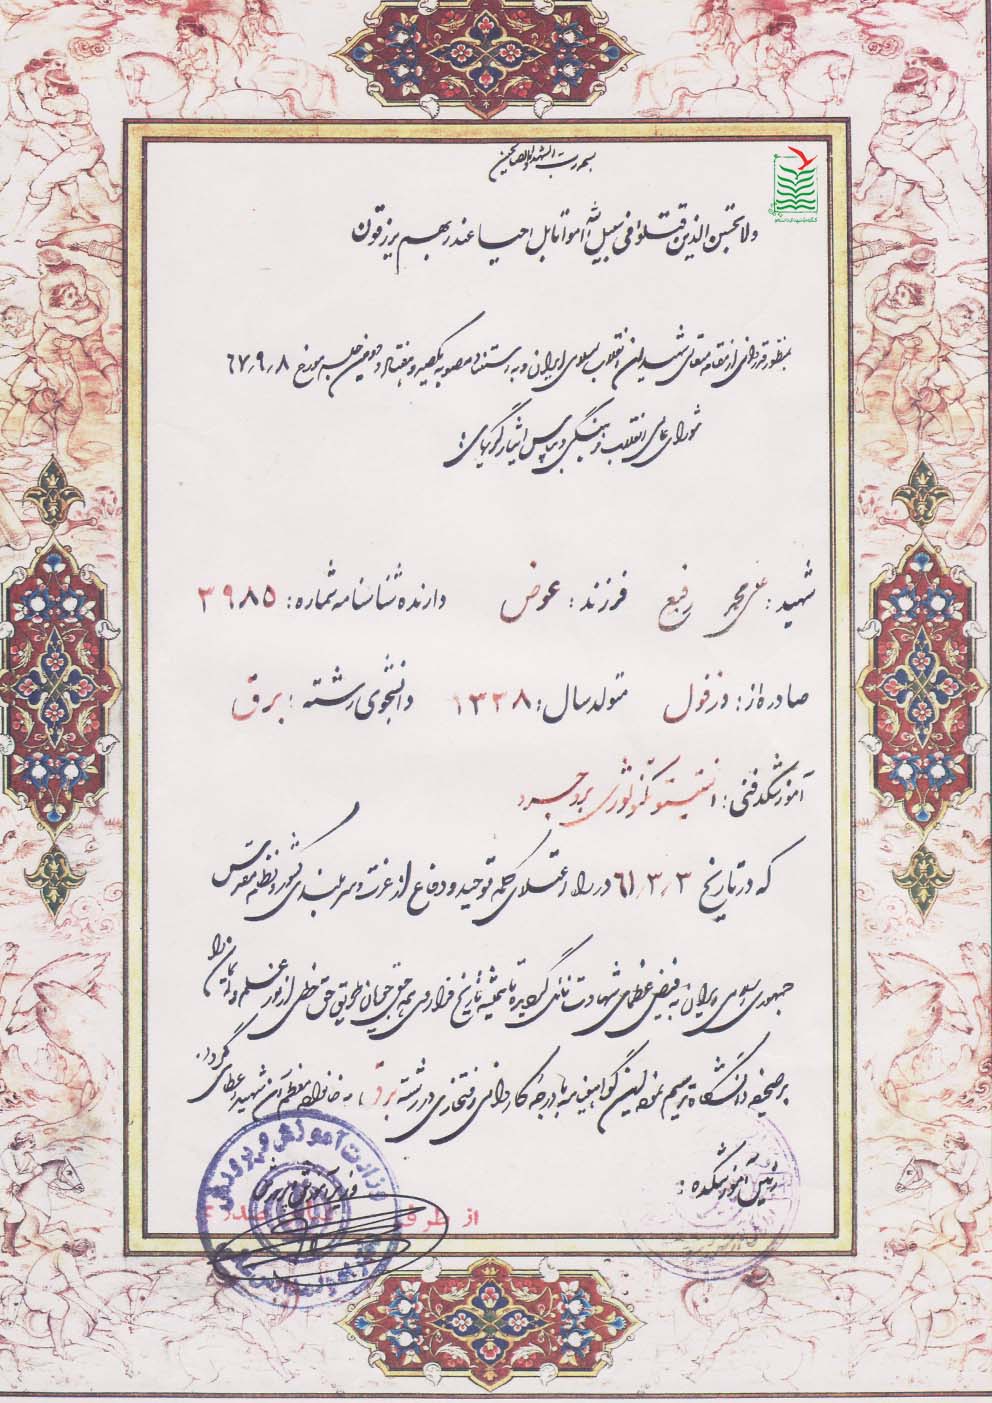 بسم رب الشهداء و الصالحین
ولا تحسبن الذین قتلوا فی سبیل الله امواتا بل احیاء عند ربهم یرزقون
بمنظور قدردانی از مقام متعالی شهیدان انقلاب اسلامی ایران و به استناد مصوبه یکصد و هفتاد و دومین جلسه مورخ ۶۷٫۹٫۸
شورای عالی انقلاب فرهنگی و بپاس ایثارگریهای:
شهید: علی محمد رفیع فرزند: عوض دارنده شناسنامه شماره: ۳۹۸۵
صادره از: دزفول متولد سال: ۱۳۳۸ دانشجوی رشته: برق
آموزشکده فنی: انستیتو تکنولوژی بروجرد
که در تاریخ ۶۱٫۳٫۳ در راه اعتلای کلمه توحید و دفاع از عزت و سربلندی کشور و نظام مقدس
جمهوری اسلامی ایران به فیض عظمای شهادت نائل گردیده تا همیشه تاریخ فرا روی همه حق جویان طریق حق خطی از نور علم و ایمان را
بر صحیفه دانشگاه ترسیم نموده این گواهینامه با درجه کاردانی افتخاری در رشته برق به خانواده معظم آن شهید اعطا می گردد.
رئیس آموزشکده:
وزیر آموزش و پرورش
وزارت آموزش و پرورش
از طرف